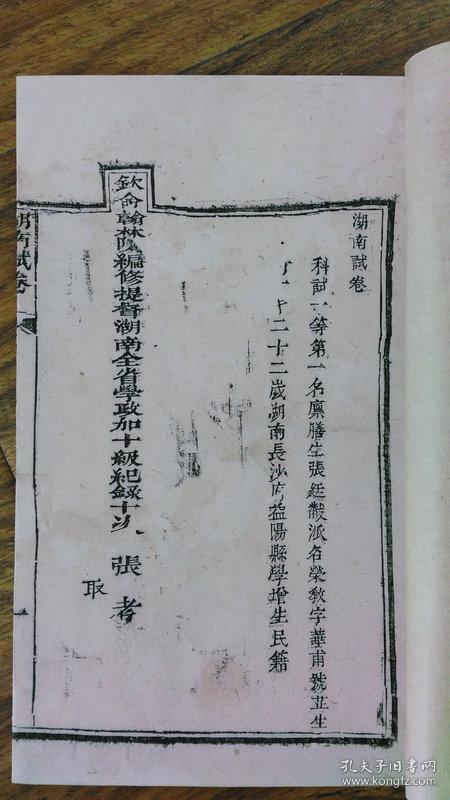 湖南試卷
科試一等第一名廩膳生張廷 派名榮敎字華甫號芷生
年二十二歲湖南長沙府益陽縣學增生民籍
欽命翰林院編修提督湖南全省學政加十級紀錄十次 張 考
取
湖南試卷
一
孔夫子旧书网
www.kongfz.com